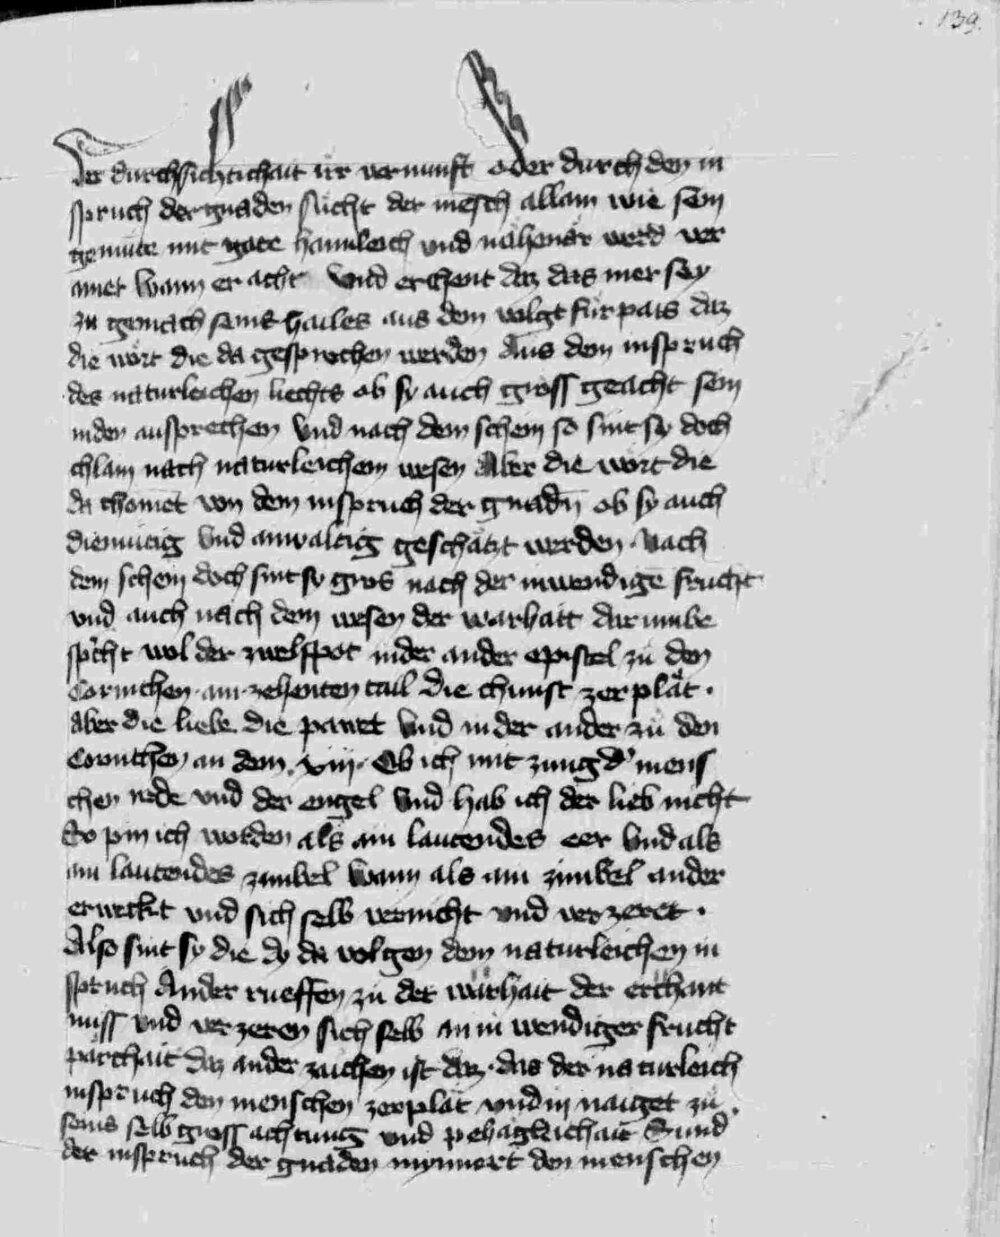 139.
der durchsichtichait irr vernunft oder durch den in
spruch der gnaden sucht der mensch allain wie sein
gemüte mit gote haimleich vnd nahenär werd ver
ainet wann er acht vnd erchent daz das mer sey
zu gemach seins hailes aus dem volgt fürpas daz
die wort die da gesprochen werden Aus dem inspruch
des naturleichen liechts ob sy auch gross geacht sein
in den aussprechen vnd nach dem schein so sint sy doch
chlain nach naturleichem wesen Aber die wort die
da choment von dem inspruch der gnadn ob sy auch
diemutig vnd ainvaltig geschätzt werden. Nach
dem schein doch sint sy gros nach der inwendigē frucht
vnd auch nach dem wesen der warhait dar umbe
spricht wol der zwelfpot in der ander epistel zu den
Corinthen. am zehenten tail Die chunst zerplät.
Aber die liebe die pawet Vnd in der ander zü den
Corinthen an dem. xiij. Ob ich mit zung d' mens
chen rede vnd der engel Vnd hab ich der lieb nicht
So pin ich worden als ain lautendes eer Vnd als
ain lautendes zimbel Wann als ain zimbel ander
erweckt vnd sich selb vernicht vnd verzeret.
Also sint sy die dy da volgen dem naturleichen in
spruch Ander rueffen zu der warhait der erchant
nuss vnd verzeren sich selb an in wendiger frucht
pärchait daz ander zaichen ist daz. das der naturleich
inspruch den menschen zerplät vnd in naiget zu
seins selb gross achtung vnd pehagleichait Sund
der inspruch der gnaden mynnert den menschen